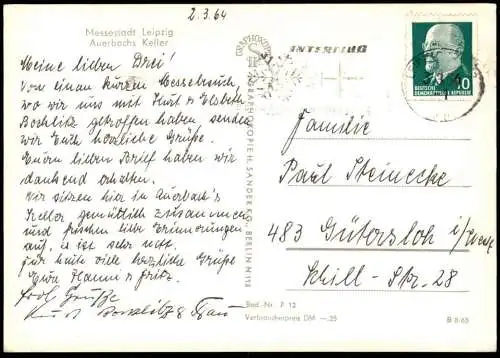 2.3.64
Messestadt Leipzig
Auerbachs Keller
Meine lieben Drei!
Von einem kurzen Messebesuch,
wo wir uns mit Kurt & Elsbeth
getroffen haben senden
wir Euch herzliche Grüße.
Euern lieben Brief haben wir
dankend erhalten.
Wir sitzen hier in Auerbach's
Keller gemütlich zusammen
und frischen liebe Erinnerungen
auf, es ist sehr nett.
Für heute viele herzliche Grüße
Eure Hanni & Fritz.
Grüße
Kurt & Frau
INTERFLUG
DEUTSCHE
DEMOKRATISCHE REPUBLIK
10
Familie
Paul Steinecke
483 Gütersloh i/Westf.
Schill-Str. 28
Best.-Nr. F 12
Verbraucherpreis DM -,25
B 8/63